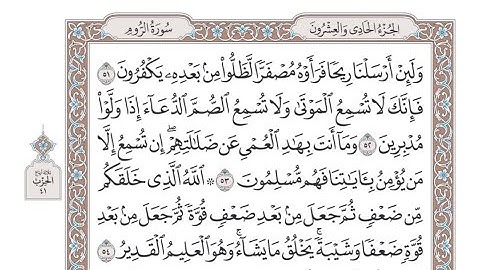 الجزء الحادي والعشرون
سورة الروم
وَلَئِنْ أَرْسَلْنَا رِيحًا فَرَأَوْهُ مُصْفَرًّا لَّظَلُّوا۟ مِنۢ بَعْدِهِۦ يَكْفُرُونَ ٥١
فَإِنَّكَ لَا تُسْمِعُ ٱلْمَوْتَىٰ وَلَا تُسْمِعُ ٱلصُّمَّ ٱلدُّعَآءَ إِذَا وَلَّوْا۟
مُدْبِرِينَ ٥٢ وَمَآ أَنتَ بِهَٰدِ ٱلْعُمْىِ عَن ضَلَٰلَتِهِمْ ۖ إِن تُسْمِعُ إِلَّا
مَن يُؤْمِنُ بِـَٔايَٰتِنَا فَهُم مُّسْلِمُونَ ٥٣ ۞ ٱللَّهُ ٱلَّذِى خَلَقَكُم
مِّن ضَعْفٍ ثُمَّ جَعَلَ مِنۢ بَعْدِ ضَعْفٍ قُوَّةً ثُمَّ جَعَلَ مِنۢ بَعْدِ
قُوَّةٍ ضَعْفًا وَشَيْبَةً ۚ يَخْلُقُ مَا يَشَآءُ ۖ وَهُوَ ٱلْعَلِيمُ ٱلْقَدِيرُ ٥٤
الحزب
٤١